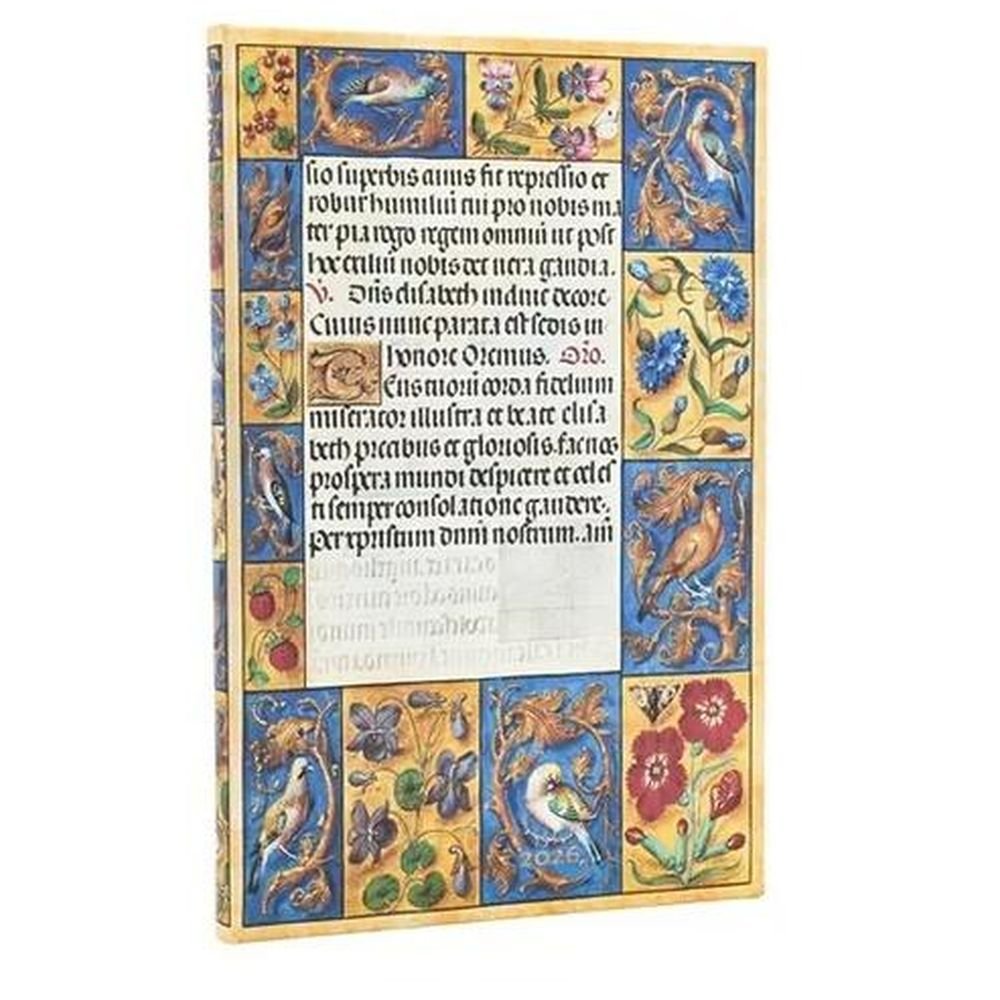 sio superbis auus fit repressio et
robur humiliū cui pro nobis ma
ter pia rogo regem omniū ut post
hoc exiliū nobis det uera gaudia.
V. elisabeth decore
Cuius nunc parata est sedis in
honore Oremus. Orō.
Deus tuorū corda fidelium
miserator illustra et beate elisa
beth precibus et gloriosis. fac nos
prospera mundi despicere et celes
ti semper consolatione gaudere.
Per xpristum dnm̄ nostrum. am̄
2026